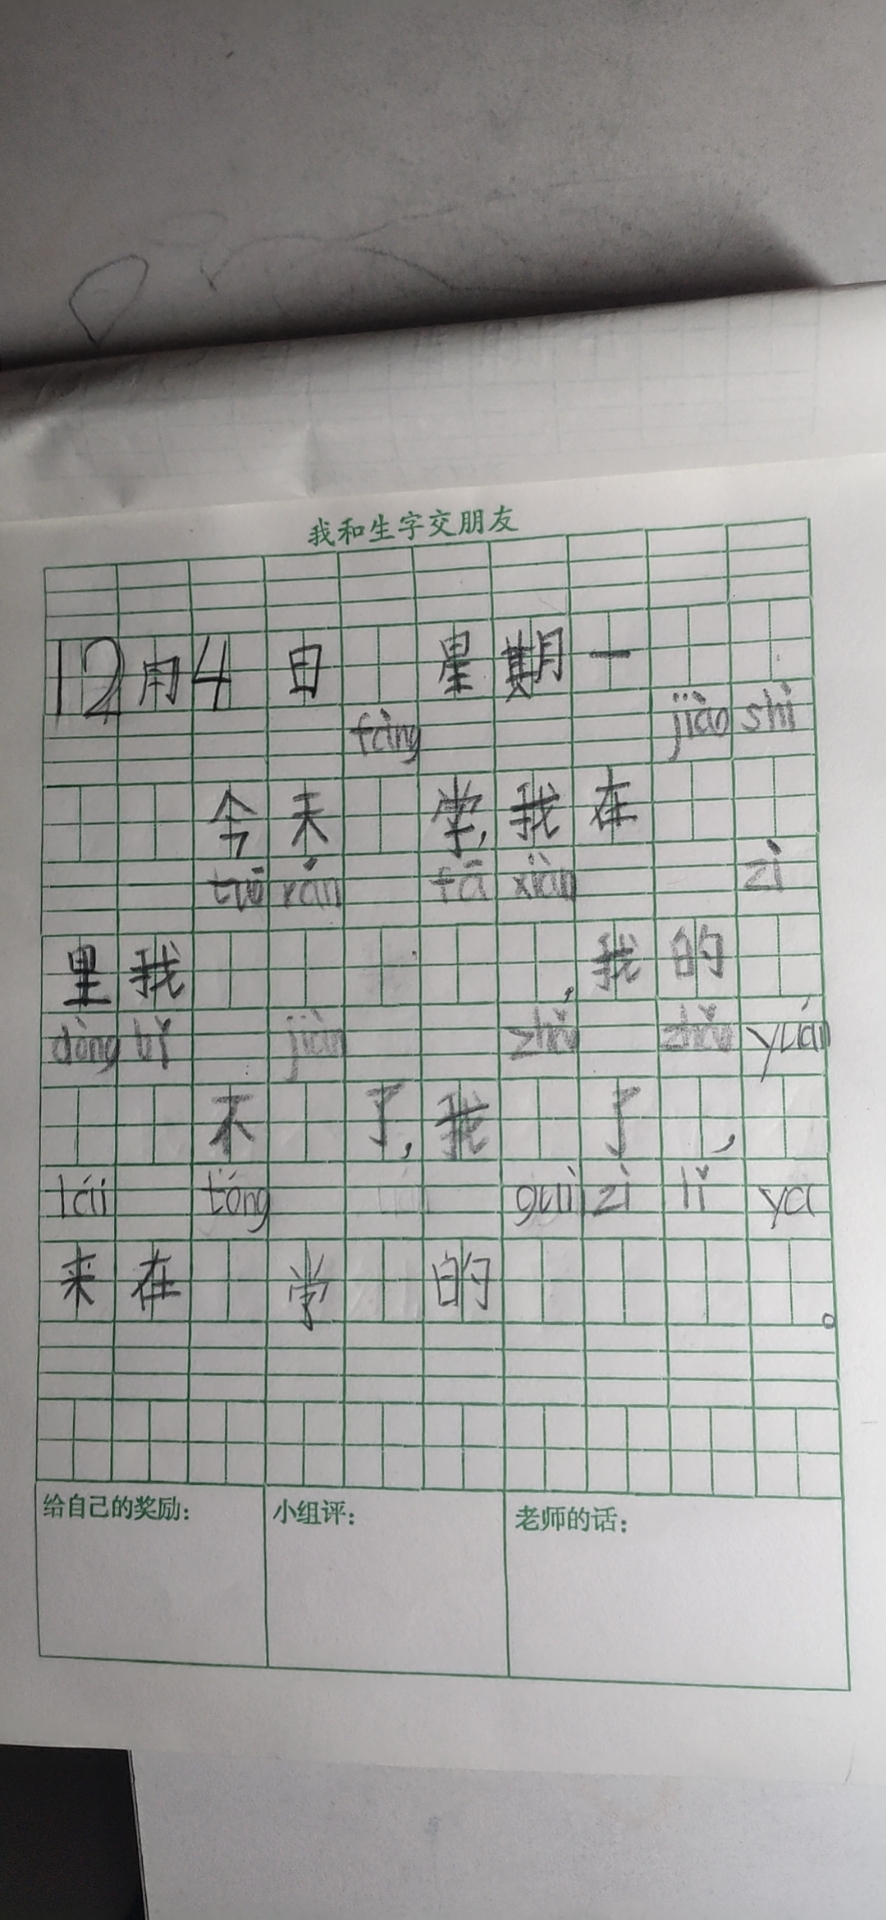 我和生字交朋友
12月4日 星期一
fàng jiào shì
今天 学,我在
tuō rán fā xiàn zì
里我 ,我的
dòng bǐ jiàn zhǎo zhǎo yuán
不 了,我 了,
lái tóng guì zi lǐ ya
来在 学 的 。
给自己的奖励:
小组评:
老师的话: